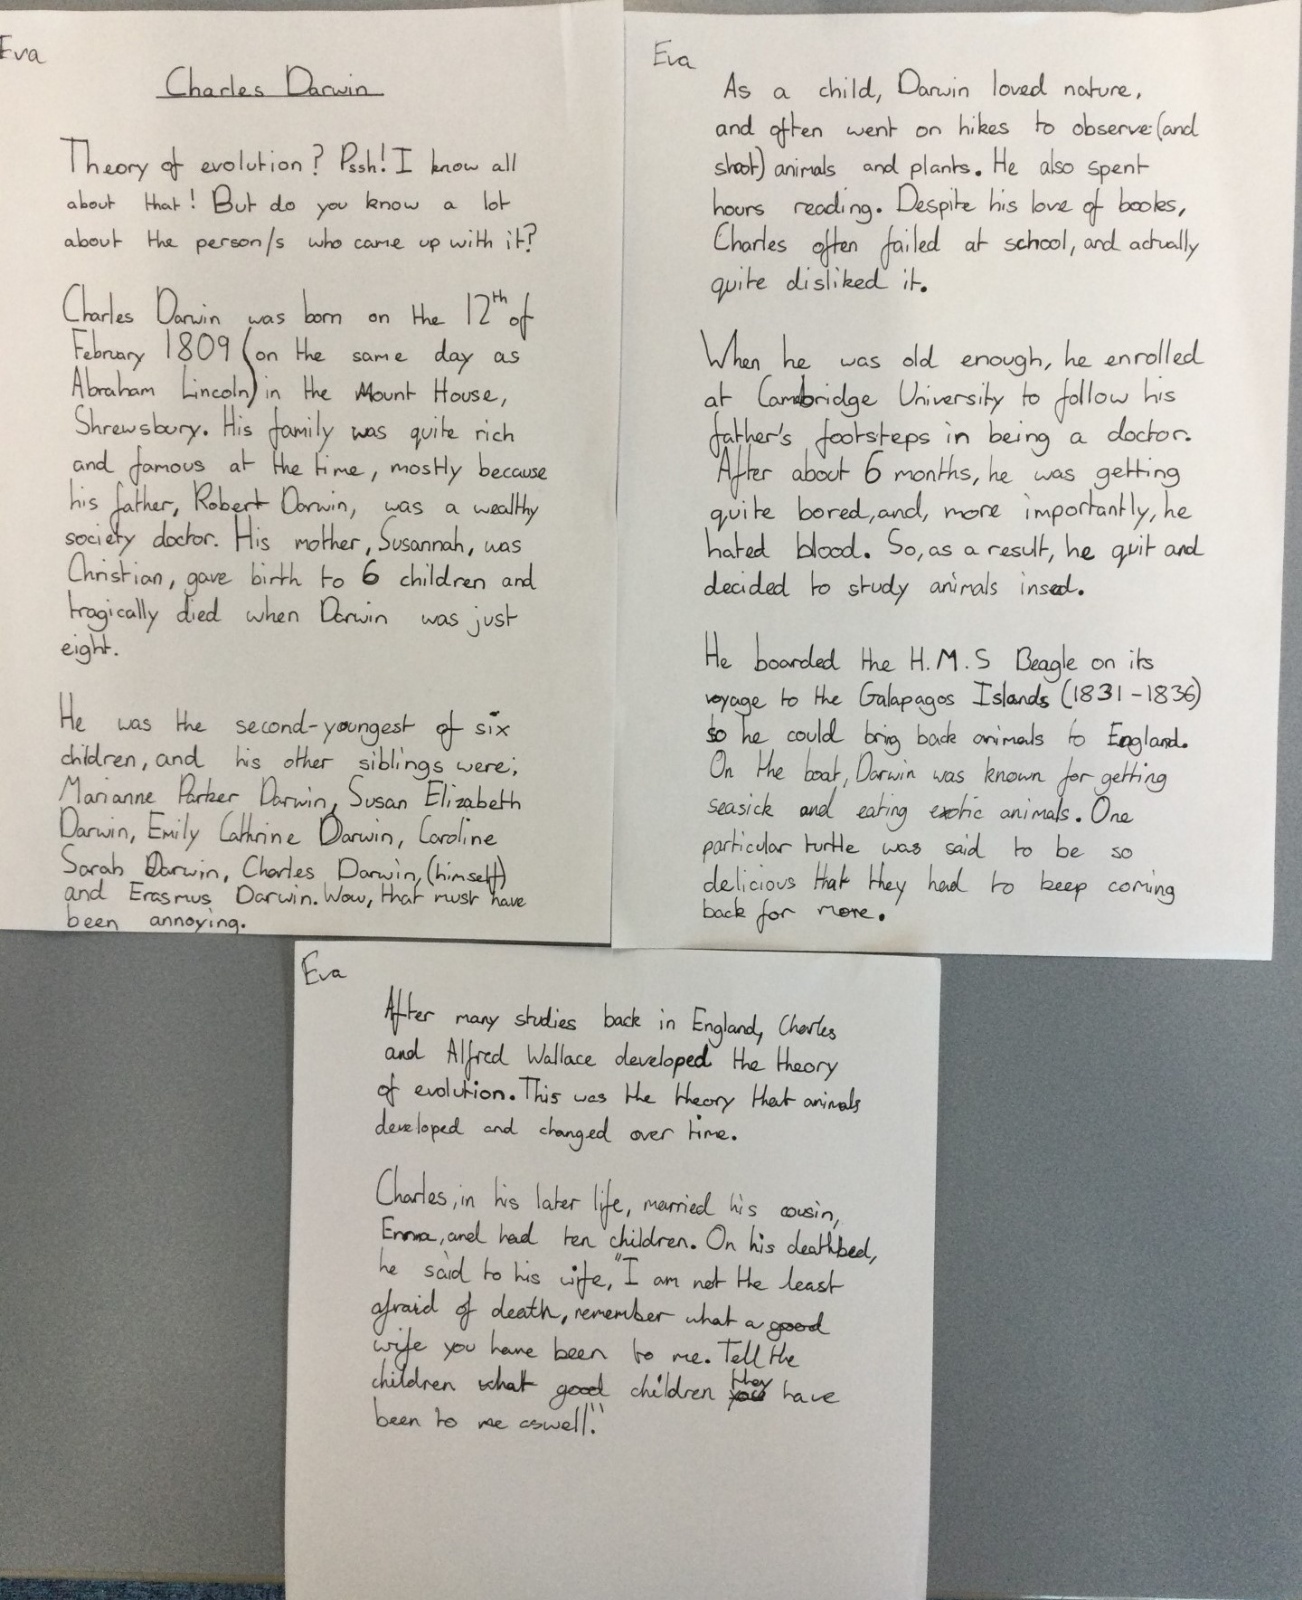 Eva
Charles Darwin
Theory of evolution? Pssh! I know all
about that! But do you know a lot
about the person/s who came up with it?
Charles Darwin was born on the 12th of
February 1809 (on the same day as
Abraham Lincoln) in the Mount House,
Shrewsbury. His family was quite rich
and famous at the time, mostly because
his father, Robert Darwin, was a wealthy
society doctor. His mother, Susannah, was
Christian, gave birth to 6 children and
tragically died when Darwin was just
eight.
He was the second-youngest of six
children, and his other siblings were;
Marianne Parker Darwin, Susan Elizabeth
Darwin, Emily Cathrine Darwin, Caroline
Sarah Darwin, Charles Darwin, (himself)
and Erasmus Darwin. Wow, that must have
been annoying.
Eva
As a child, Darwin loved nature,
and often went on hikes to observe (and
shoot) animals and plants. He also spent
hours reading. Despite his love of books,
Charles often failed at school, and actually
quite disliked it.
When he was old enough, he enrolled
at Cambridge University to follow his
father's footsteps in being a doctor.
After about 6 months, he was getting
quite bored, and, more importantly, he
hated blood. So, as a result, he quit and
decided to study animals insed.
He boarded the H.M.S Beagle on its
voyage to the Galapagos Islands (1831-1836)
so he could brig back animals to England.
On the boat, Darwin was known for getting
seasick and eating exotic animals. One
particular turtle was said to be so
delicious that they had to keep coming
back for more.
Eva
After many studies back in England, Charles
and Alfred Wallace developed the theory
of evolution. This was the theory that animals
developed and changed over time.
Charles, in his later life, married his cousin,
Emma, and had ten children. On his deathbed,
he said to his wife, "I am not the least
afraid of death, remember what a good
wife you have been to me. Tell the
children what good children they have
been to me aswell."